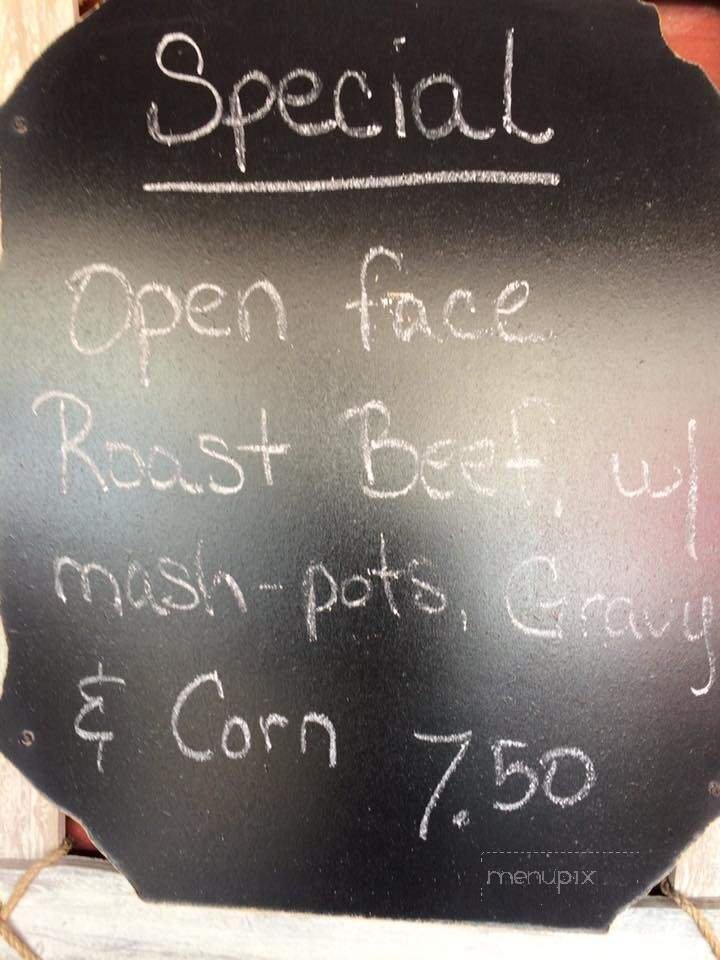 Special
Open face
Roast Beef, w/
mash-pots, Gravy
& Corn 7.50
menupix